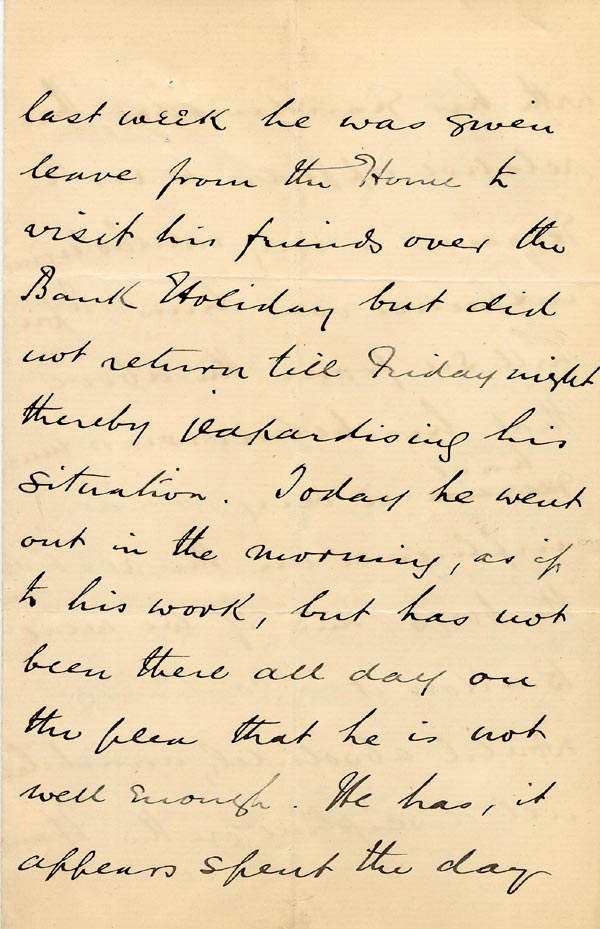 last week he was given
leave from the Home to
visit his friends over the
Bank Holiday but did
not return till Friday night
thereby jeapardising his
situation. Today he went
out in the morning, as if
to his work, but has not
been there all day on
the plea that he is not
well enough. He has, it
appears spent the day